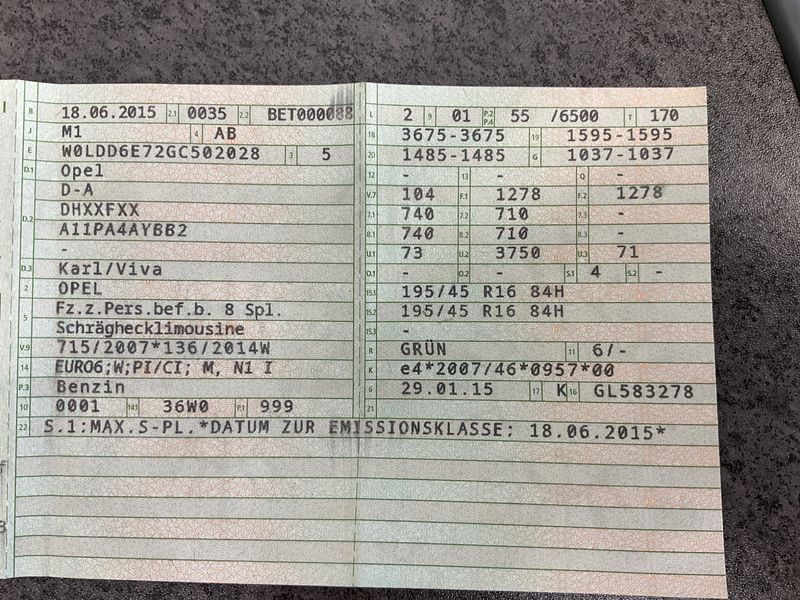 B 18.06.2015 2.1 0035 2.2 BET000088 L 2 9 01 P.2 P.4 55 /6500 T 170
J M1 4 AB 18 3675-3675 19 1595-1595
E W0LDD6E72GC502028 3 5 20 1485-1485 G 1037-1037
D.1 Opel 12 - 13 - Q -
D-A V.7 104 F.1 1278 F.2 1278
D.2 DHXXFXX 7.1 740 7.2 710 7.3 -
A11PA4AYBB2 8.1 740 8.2 710 8.3 -
- U.1 73 U.2 3750 U.3 71
D.3 Karl/Viva O.1 - O.2 - S.1 4 S.2 -
2 OPEL 15.1 195/45 R16 84H
5 Fz.z.Pers.bef.b. 8 Spl. 15.2 195/45 R16 84H
Schräghecklimousine 15.3 -
V.9 715/2007*136/2014W R GRÜN 11 6/-
14 EURO6;W;PI/CI; M, N1 I K e4*2007/46*0957*00
P.3 Benzin 6 29.01.15 17 K 16 GL583278
10 0001 14.1 36W0 P.1 999 21
22 S.1:MAX.S-PL.*DATUM ZUR EMISSIONSKLASSE: 18.06.2015*